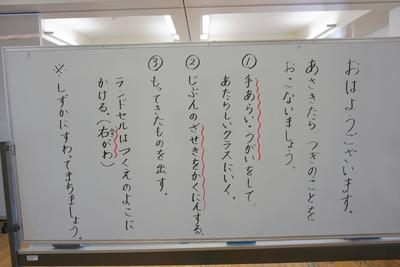 おはようございます。
あさきたら つぎのことを
おこないましょう。
① 手あらい・うがいをして、
あたらしいクラスにいく。
② じぶんのざせきをかくにんする。
③ もってきたものを出す。
ランドセルはつくえのよこに
かける。(右がわ)
※しずかにすわってまちましょう。